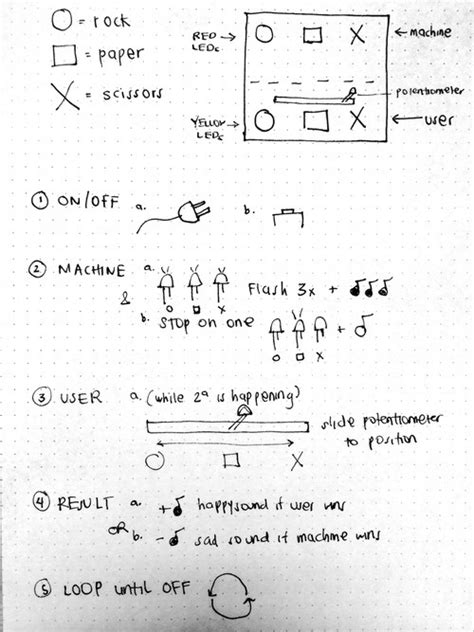 = rock
= paper
= scissors
RED LEDs
machine
potentiometer
YELLOW LEDs
user
① ON/OFF a. b.
② MACHINE a. Flash 3x +
& b. STOP on one +
③ USER a. (while 2a is happening)
slide potentiometer
to position
④ RESULT a. + happy sound if user wins
OR b. - sad sound if machine wins
⑤ LOOP until OFF